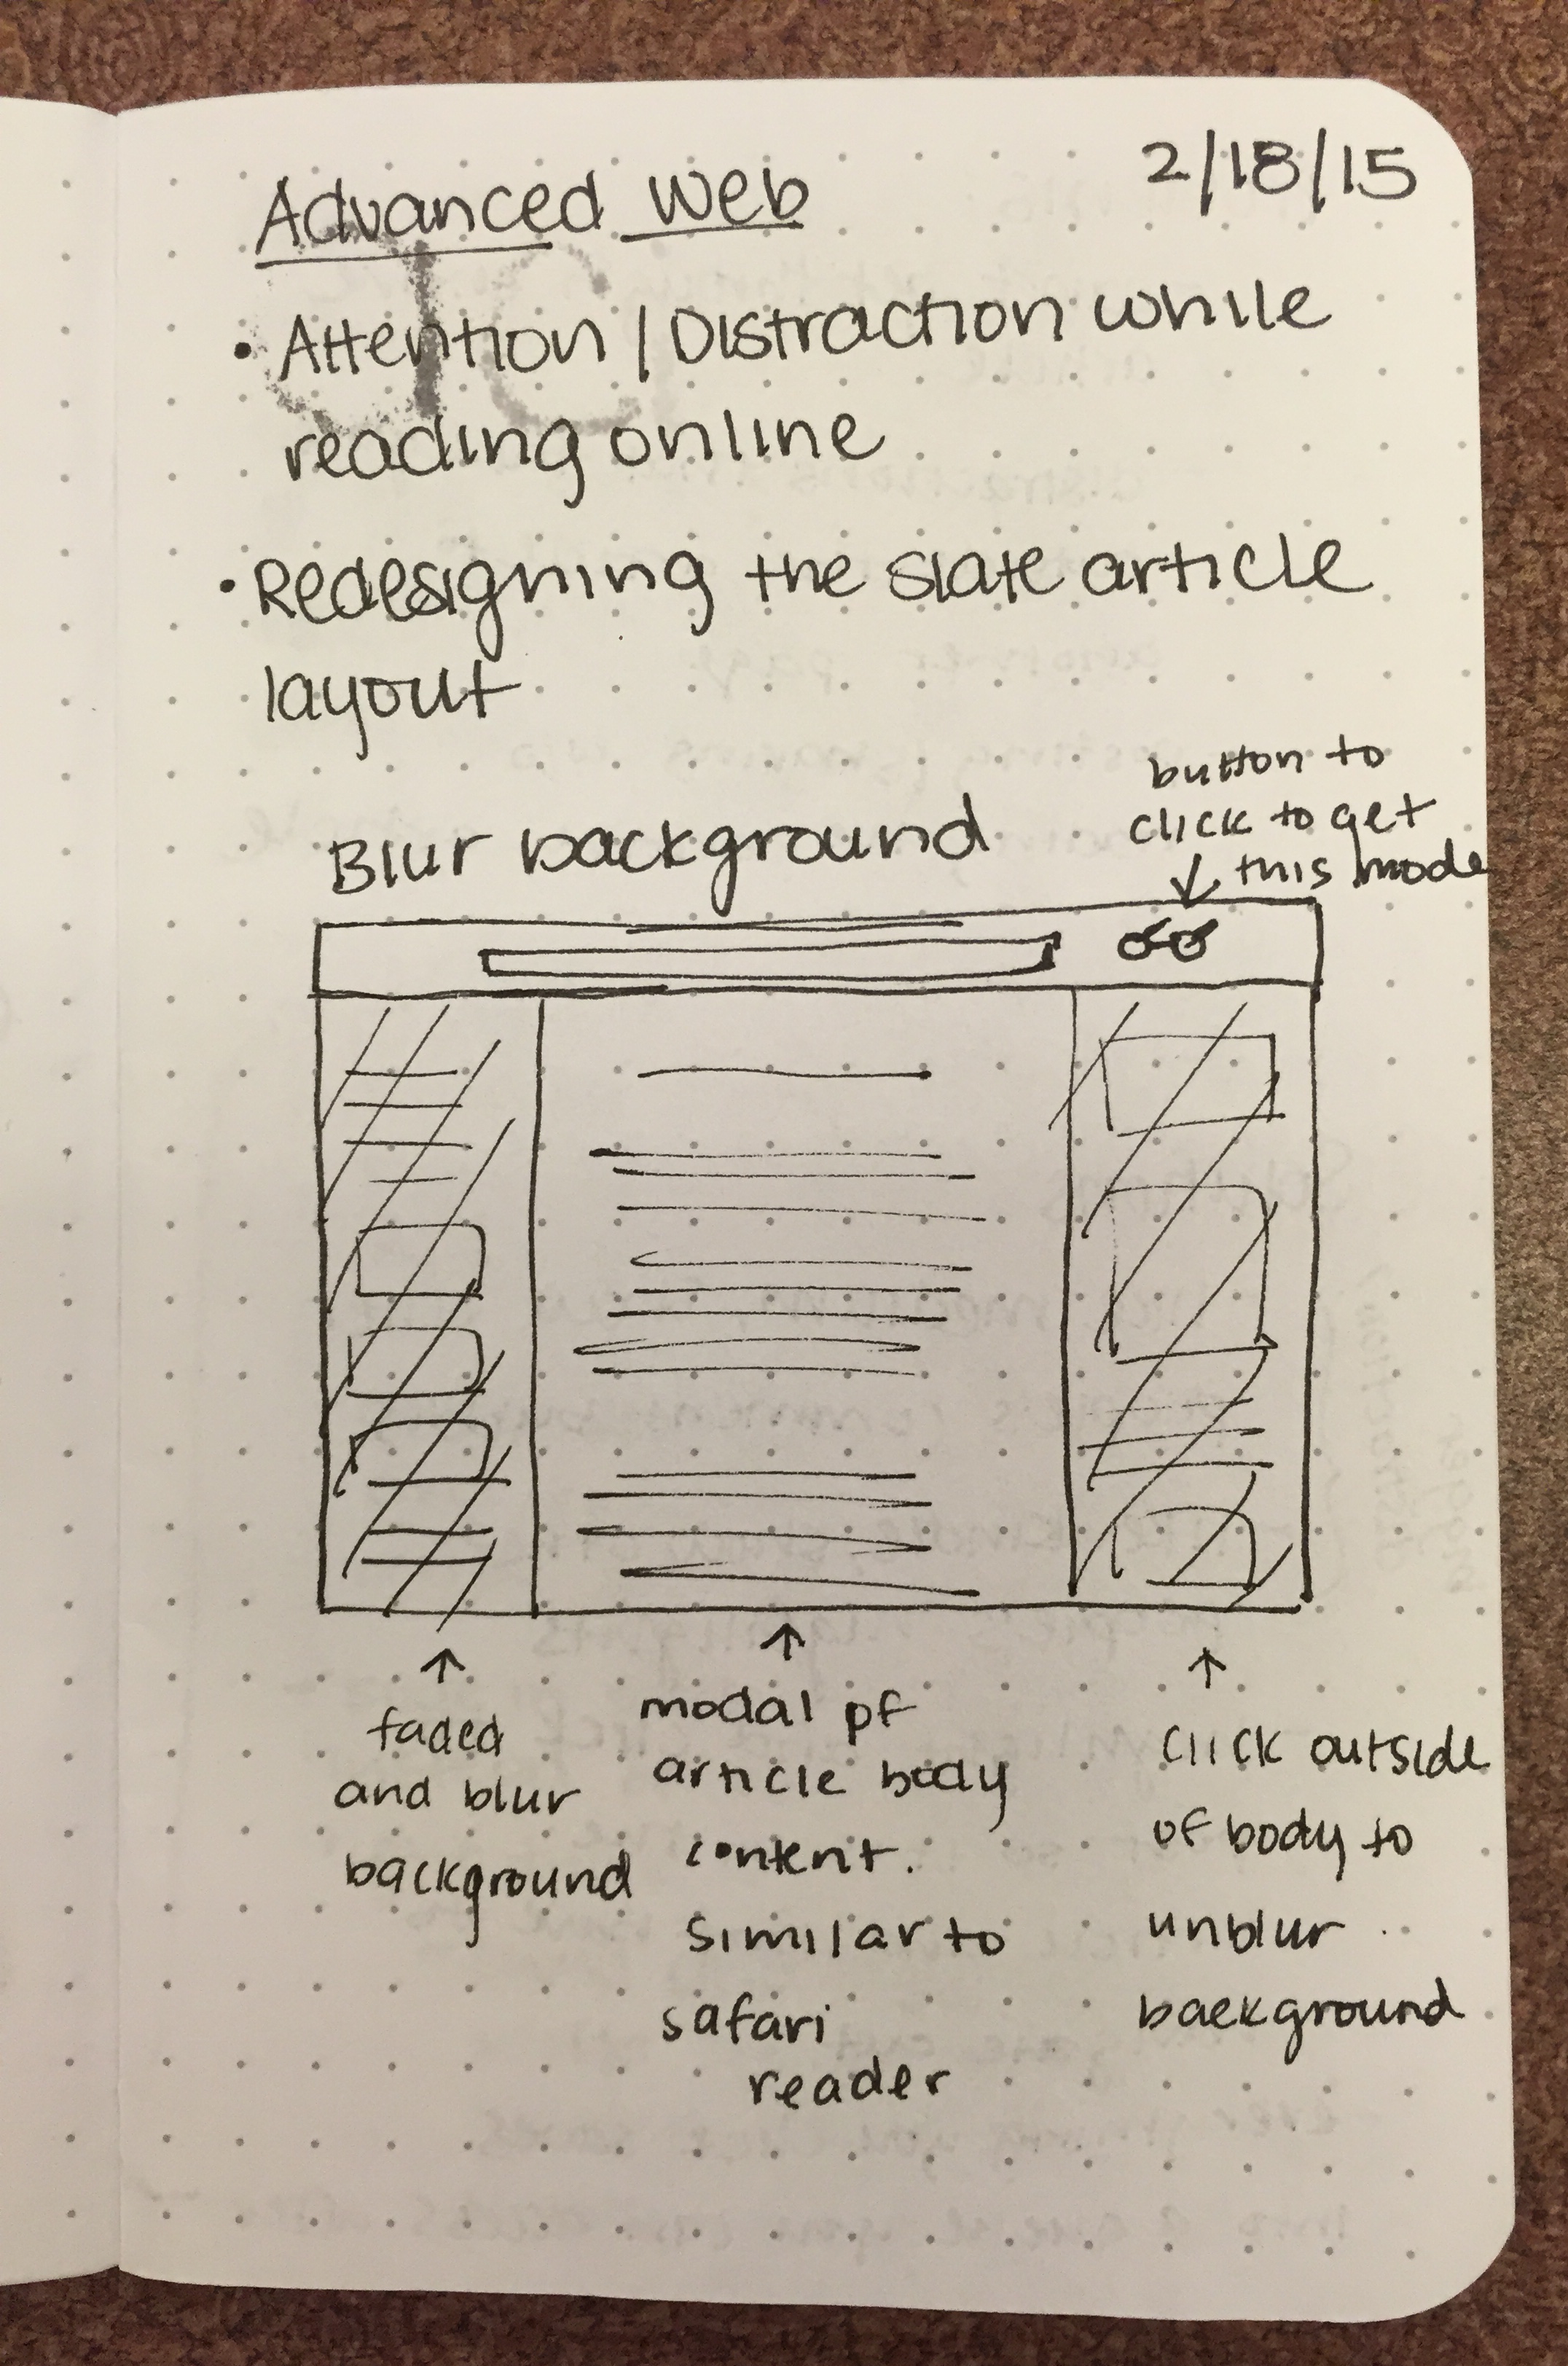 Advanced Web
2/18/15
• Attention / Distraction while
reading online
• Redesigning the slate article
layout
button to
click to get
this mode
Blur background
faded
and blur
background
modal pf
article body
content.
similar to
safari
reader
click outside
of body to
unblur
background